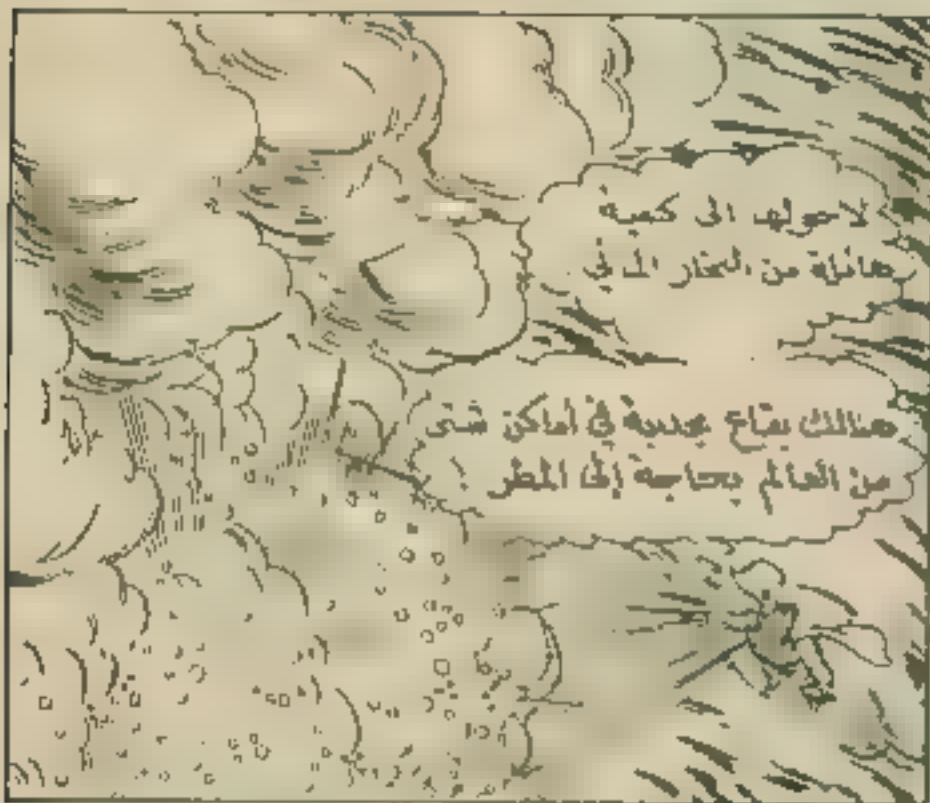 لاحولها الى كمية
هائلة من البخار المائي
هنالك بقاع مجدبة في أماكن شتى
من العالم بحاجة إلى المطر !